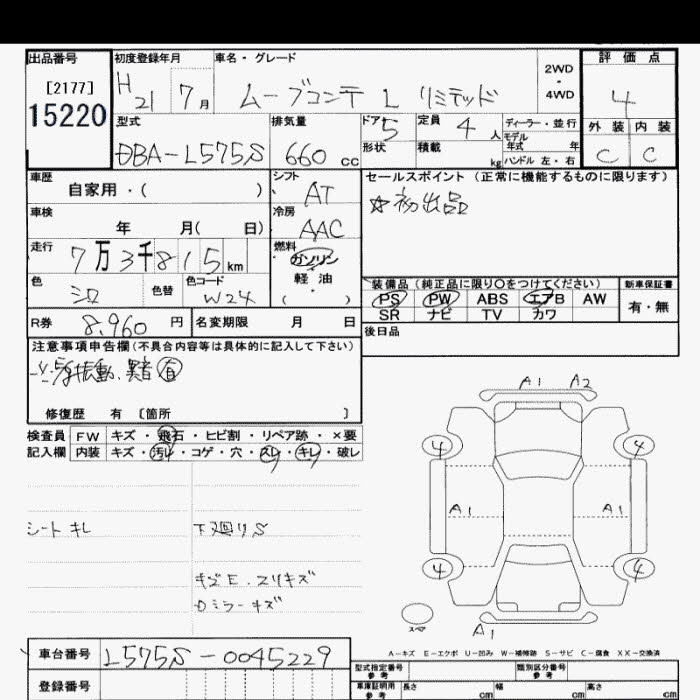 出品番号 初度登録年月 車名・グレード 評価点
[2177] H21 7月 ムーブコンテ L リミテッド 2WD・4WD 4
15220
型式 排気量 ドア 5 定員 4人 ディーラー・並行 外装 内装
DBA-L575S 660cc 形状 積載 kg モデル年式 年 ハンドル 左・右 C C
車歴 シフト セールスポイント (正常に機能するものに限ります)
自家用・( ) AT ☆初出品
車検 冷房
年 月( 日) AAC
走行 燃料
7万3千815km ガソリン
軽油 装備品 (純正品に限り○をつけてください) 新車保証書
色 色替 色コード ( ) PS PW ABS エアB AW 有・無
シロ W24 SR ナビ TV カワ
R券 8,960円 名変期限 月 日 後日品
注意事項申告欄(不具合内容等は具体的に記入して下さい)
振動、異音 有
修復歴 有 〔箇所 〕
A1 A2
検査員 FW キズ・飛石・ヒビ割・リペア跡・×要
記入欄 内装 キズ・汚れ・コゲ・穴・スレ・キレ・破レ
4 4
A1 A1
シート キレ 下廻りS
4 4
キズE・スリキズ
ミラーキズ
スペア
A1
A-キズ E-エクボ U-凹み W-補修跡 S-サビ C-腐食 XX-交換済
車台番号 L575S-0045229 型式指定番号 参考 類別区分番号 参考
登録番号 車庫証明用 参考 長さ cm 幅 cm 高さ cm